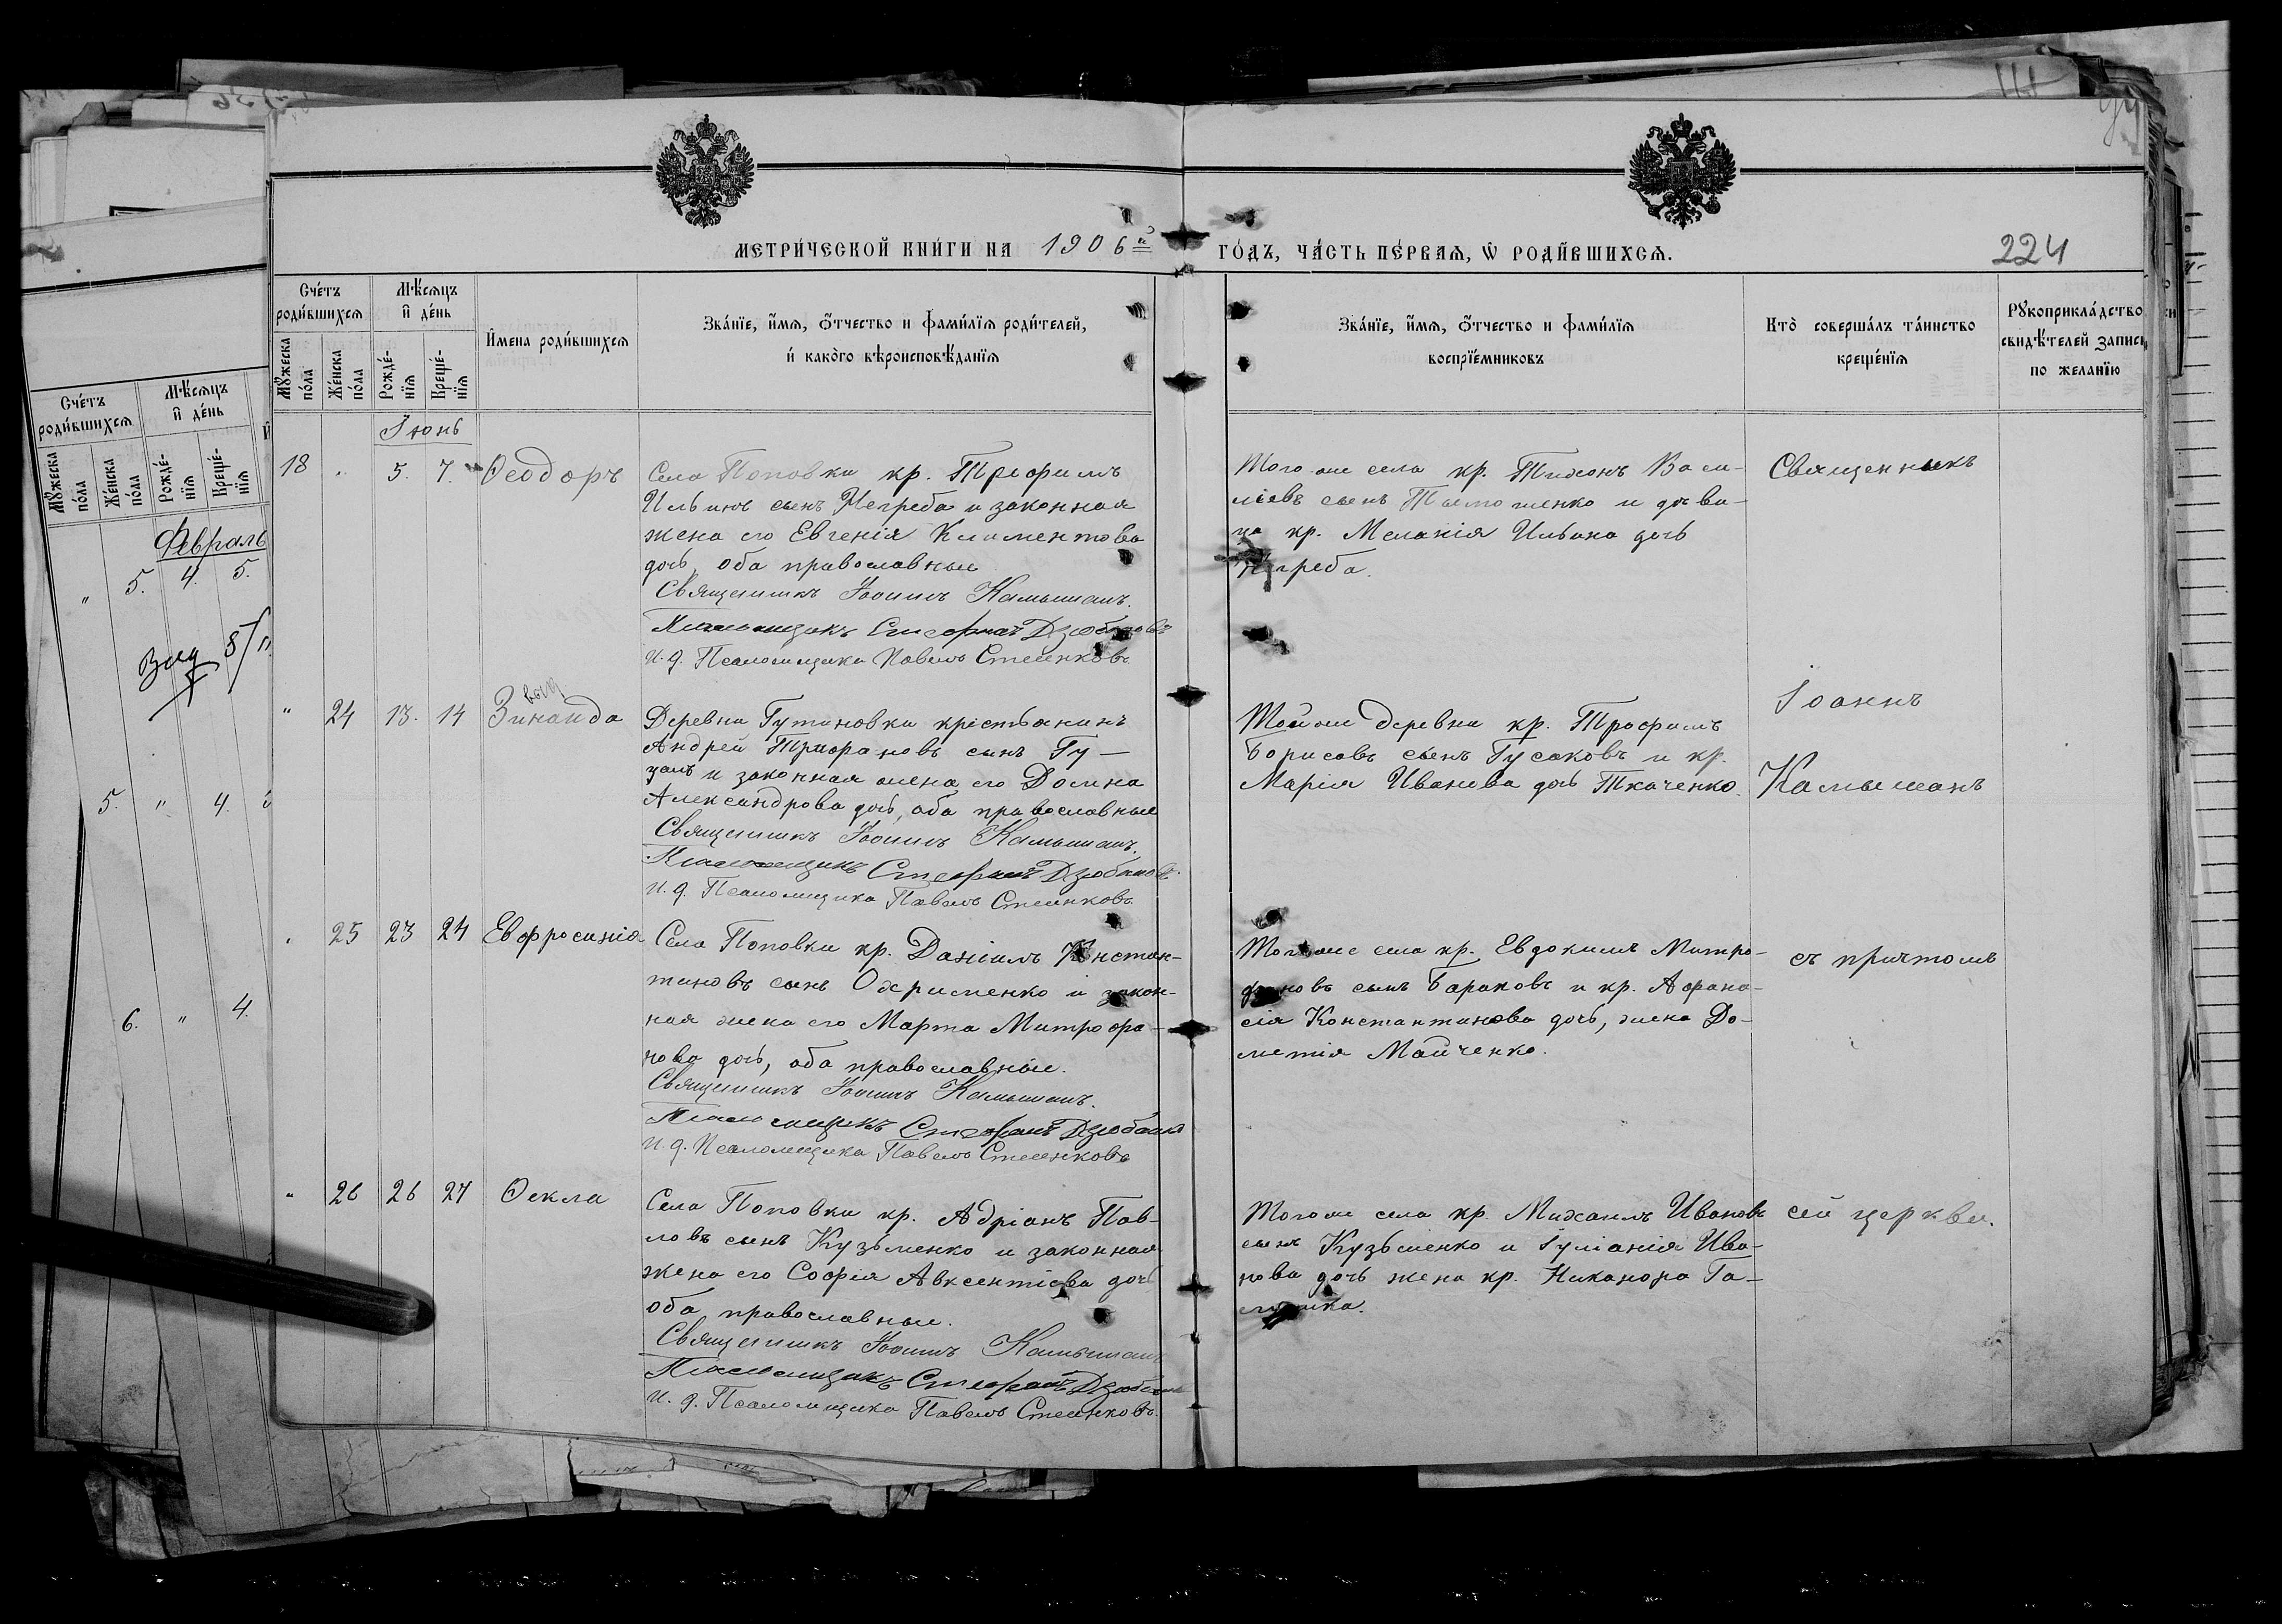 224
МЕТРИ́ЧЕСКОЙ КНИ́ГИ НА 1906й ГО́ДЪ, ЧА́СТЬ ПЕ́РВАѦ, Ѡ РОДИ́ВШИХСѦ.
Сче́тъ роди́вшихсѧ
Мѣ́сѧцъ и҆ де́нь
И҆мена роди́вшихсѧ
Зва́нїе, и҆́мѧ, ѻ҆́тчество и фами́лїѧ роди́телей,
и҆ како́го вѣроисповѣ́данїѧ
Зва́нїе, и҆́мѧ, ѻ҆́тчество и фами́лїѧ
воспрїе́мниковъ
Кто̀ соверша́лъ та́инство
креще́нїѧ
Рꙋкоприкла́дство
свидѣ́телей запис
по жела́нїю
Мꙋ́жеска по́ла
Же́нска по́ла
Рожде́нїѧ
Креще́нїѧ
Іюнь
18 " 5. 7. Ѳеодоръ
Села Поповки кр. Трофимъ
Ильинъ сынъ Негреба и законная
жена его Евгенія Климентова
дочь, оба православные
Священникъ Іоаннъ Камышанъ.
Псаломщикъ Стефанъ Дзюбановъ
И. д. Псаломщика Павелъ Стеенковъ.
Того же села кр. Тихонъ Васи-
ліевъ сынъ Тимошенко и дѣви-
ца кр. Меланія Ильина дочь
Негреба.
Священникъ
" 24 13. 14 Зинаида
Деревни Гутиновки крестьянинъ
Андрей Трифоновъ сынъ Гу-
цалъ и законная жена его Домна
Александрова дочь, оба православные
Священникъ Іоаннъ Камышанъ.
Псаломщикъ Стефанъ Дзюбановъ
И. д. Псаломщика Павелъ Стеенковъ
Той же деревни кр. Трофимъ
Борисовъ сынъ Гусаковъ и кр.
Марія Иванова дочь Ткаченко.
Іоаннъ
Камышанъ
" 25 23 24 Евфросинія
Села Поповки кр. Даніилъ Констан-
тиновъ сынъ Охрименко и закон-
ная жена его Марта Митрофа-
нова дочь, оба православные.
Священникъ Іоаннъ Камышанъ.
Псаломщикъ Стефанъ Дзюбанов
И. д. Псаломщика Павелъ Стеенковъ
Того же села кр. Евдокимъ Митро-
фановъ сынъ Бараковъ и кр. Афана-
сія Константинова дочь, жена До-
метія Мойченко.
съ причтомъ
" 26 26 27 Ѳекла
Села Поповки кр. Адріанъ Пав-
ловъ сынъ Кузьменко и законная
жена его Софія Авксентіева дочь
оба православные.
Священникъ Іоаннъ Камышанъ
Псаломщикъ Стефанъ Дзюбанов
И. д. Псаломщика Павелъ Стеенковъ.
Того же села кр. Михаилъ Ивановъ
сынъ Кузьменко и Іуліанія Ива-
нова дочь жена кр. Никанора Га-
сей церкви.
Сче́тъ роди́вшихсѧ
Мѣ́сѧцъ и҆ де́нь
Мꙋ́жеска по́ла
Же́нска по́ла
Рожде́нїѧ
Креще́нїѧ
Февраль
" 5. 4. 5.
5. " 4.
6. " 4.